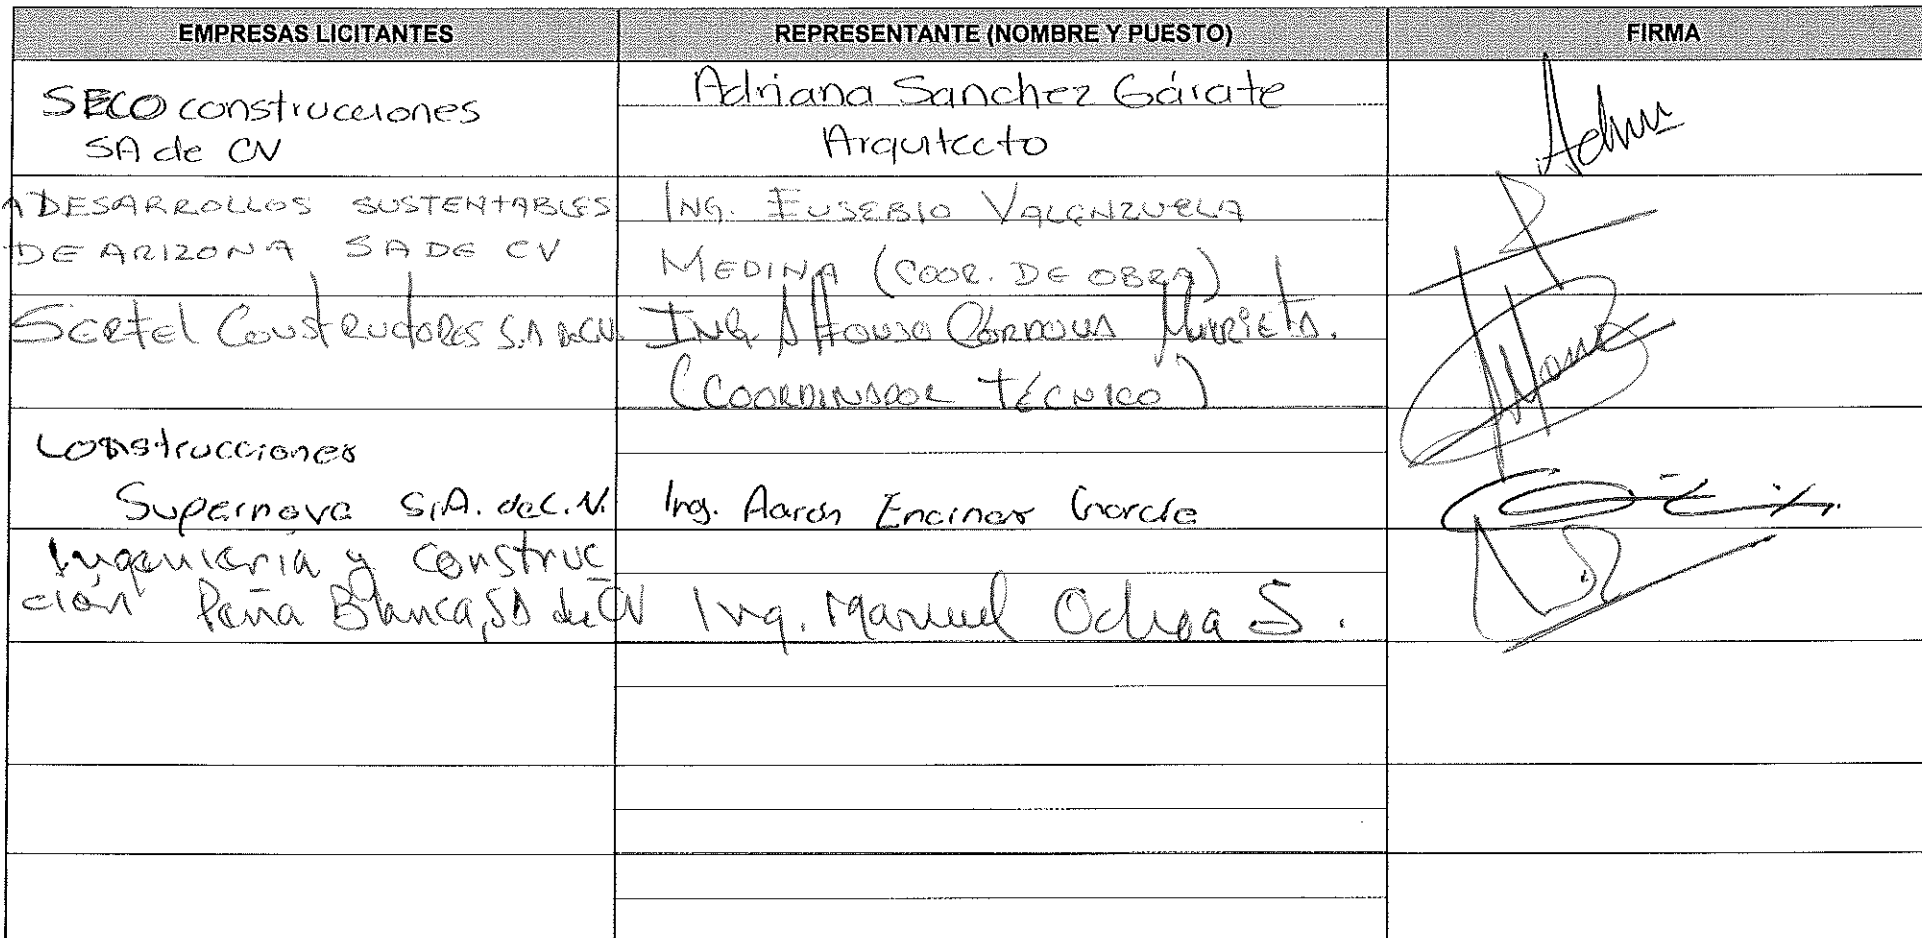 EMPRESAS LICITANTES REPRESENTANTE (NOMBRE Y PUESTO) FIRMA
SECO construcciones
SA de CV
Adriana Sanchez Gárate
Arquitecto
DESARROLLOS SUSTENTABLES
DE ARIZONA SA DE CV
ING. EUSEBIO VALENZUELA
MEDINA (COOR. DE OBRA)
Sertel Constructores S.A de CV.
Ing. Alfonso Córdova Murrieta.
(COORDINADOR TÉCNICO)
Construcciones
Supernova S.A. de C.V.
Ing. Aarón Encinas García
Ingeniería y Construc
ción Peña Blanca, SA de CV
Ing. Manuel Ochoa S.